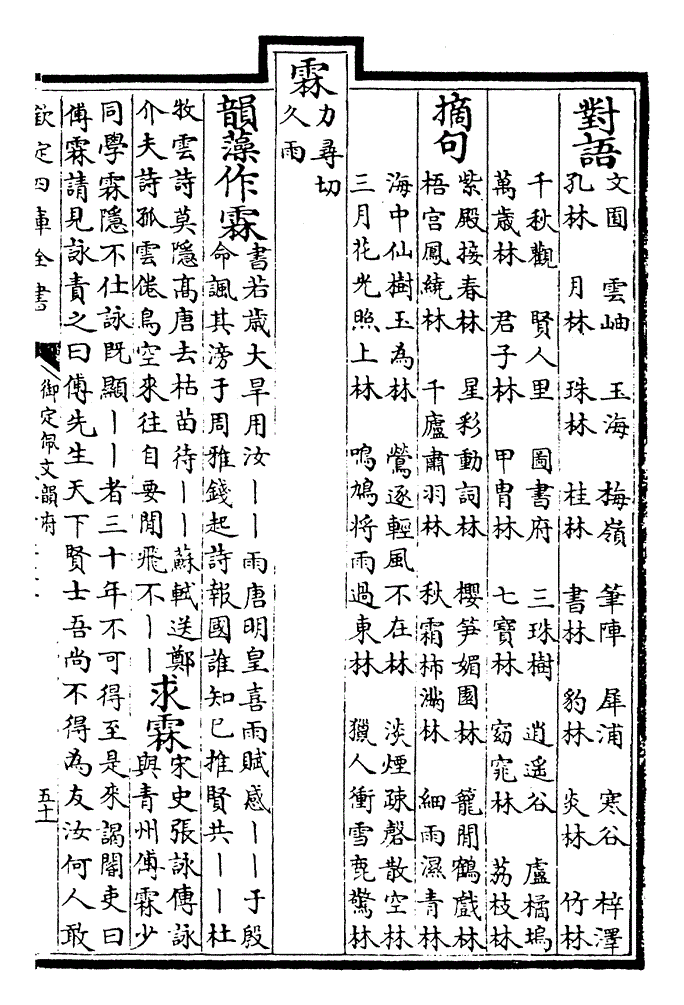 對語
文囿 雲岫 玉海 梅嶺 筆陣 犀浦 寒谷 梓澤
孔林 月林 珠林 桂林 書林 豹林 炎林 竹林
千秋觀 賢人里 圖書府 三珠樹 逍遥谷 盧橘塢
萬歲林 君子林 甲胄林 七寶林 窈窕林 荔枝林
摘句
紫殿接春林 星彩動詞林 櫻笋媚園林 籠開鶴戲林
梧宫鳳繞林 千廬肅羽林 秋霜柿滿林 細雨濕青林
海中仙樹玉為林 鶯逐輕風不在林 淡煙疎磬散空林
三月花光照上林 鳴鳩将雨過東林 獵人衝雪鹿驚林
霖
力尋切
久雨
韻藻作霖
書若歲大旱用汝丨丨雨唐明皇喜雨賦感丨丨于殷
命諷其滂于周雅錢起詩報國誰知已推賢共丨丨杜
牧雲詩莫隱髙唐去枯苗待丨丨蘇軾送鄭
介夫詩孤雲倦鳥空來往自要閒飛不丨丨
求霖
宋史張詠傳詠
與青州傅霖少
同學霖隱不仕詠既顯丨丨者三十年不可得至是來謁閽吏曰
傅霖請見詠責之曰傅先生天下賢士吾尚不得為友汝何人敢
欽定四庫全書
御定佩文韻府
五十